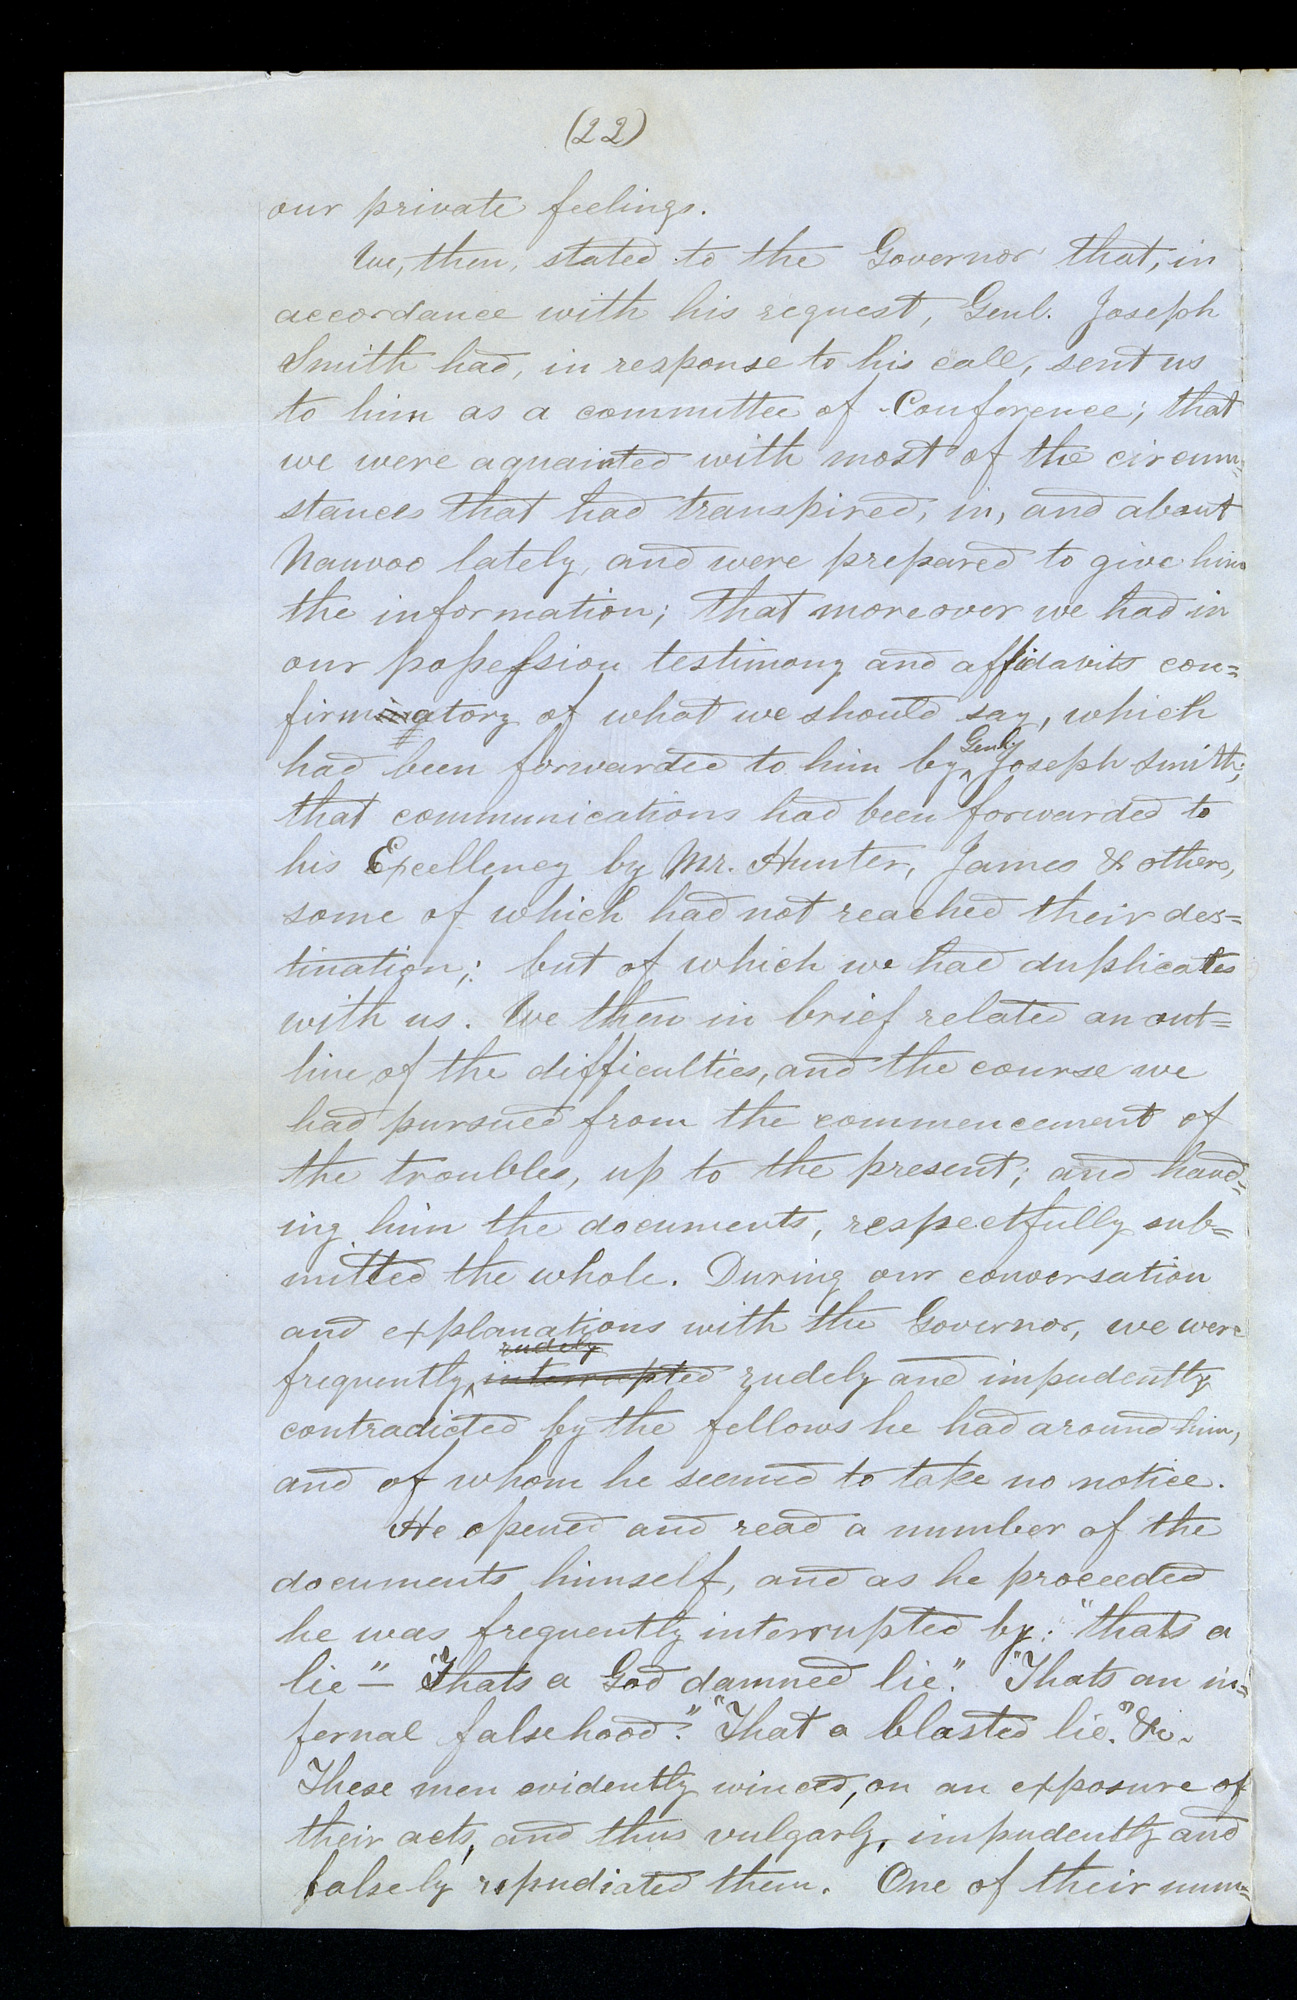 (22)
our private feelings.
We, then, stated to the Governor that, in
accordance with his request, Genl. Joseph
Smith had, in response to his call, sent us
to him as a committee of Conference; that
we were aquainted with most of the circum=
stances that had transpired, in, and about
Nauvoo lately, and were prepared to give him
the information; that moreover we had in
our possession testimony and affidavits con=
firminatory of what we should say, which
had been forwarded to him by Genl. Joseph Smith;
that communications had been forwarded to
his Excellency by Mr. Hunter, James & others,
some of which had not reached their des=
tination; but of which we had duplicates
with us. We then in brief related an out=
line of the difficulties, and the course we
had pursued from the commencement of
the troubles, up to the present; and hand=
ing him the documents, respectfully sub=
mitted the whole. During our conversation
and explanations with the Governor, we were
frequently, rudely interrupted rudely and impudently
contradicted by the fellows he had around him,
and of whom he seemed to take no notice.
He opened and read a number of the
documents himself, and as he proceeded
he was frequently interrupted by: "thats a
lie"— Thats a God damned lie". "Thats an in=
fernal falsehood". "That a blasted lie". &c.
These men evidently winced, on an exposure of
their acts, and thus vulgarly, impudently and
falsely repudiated them. One of their num=